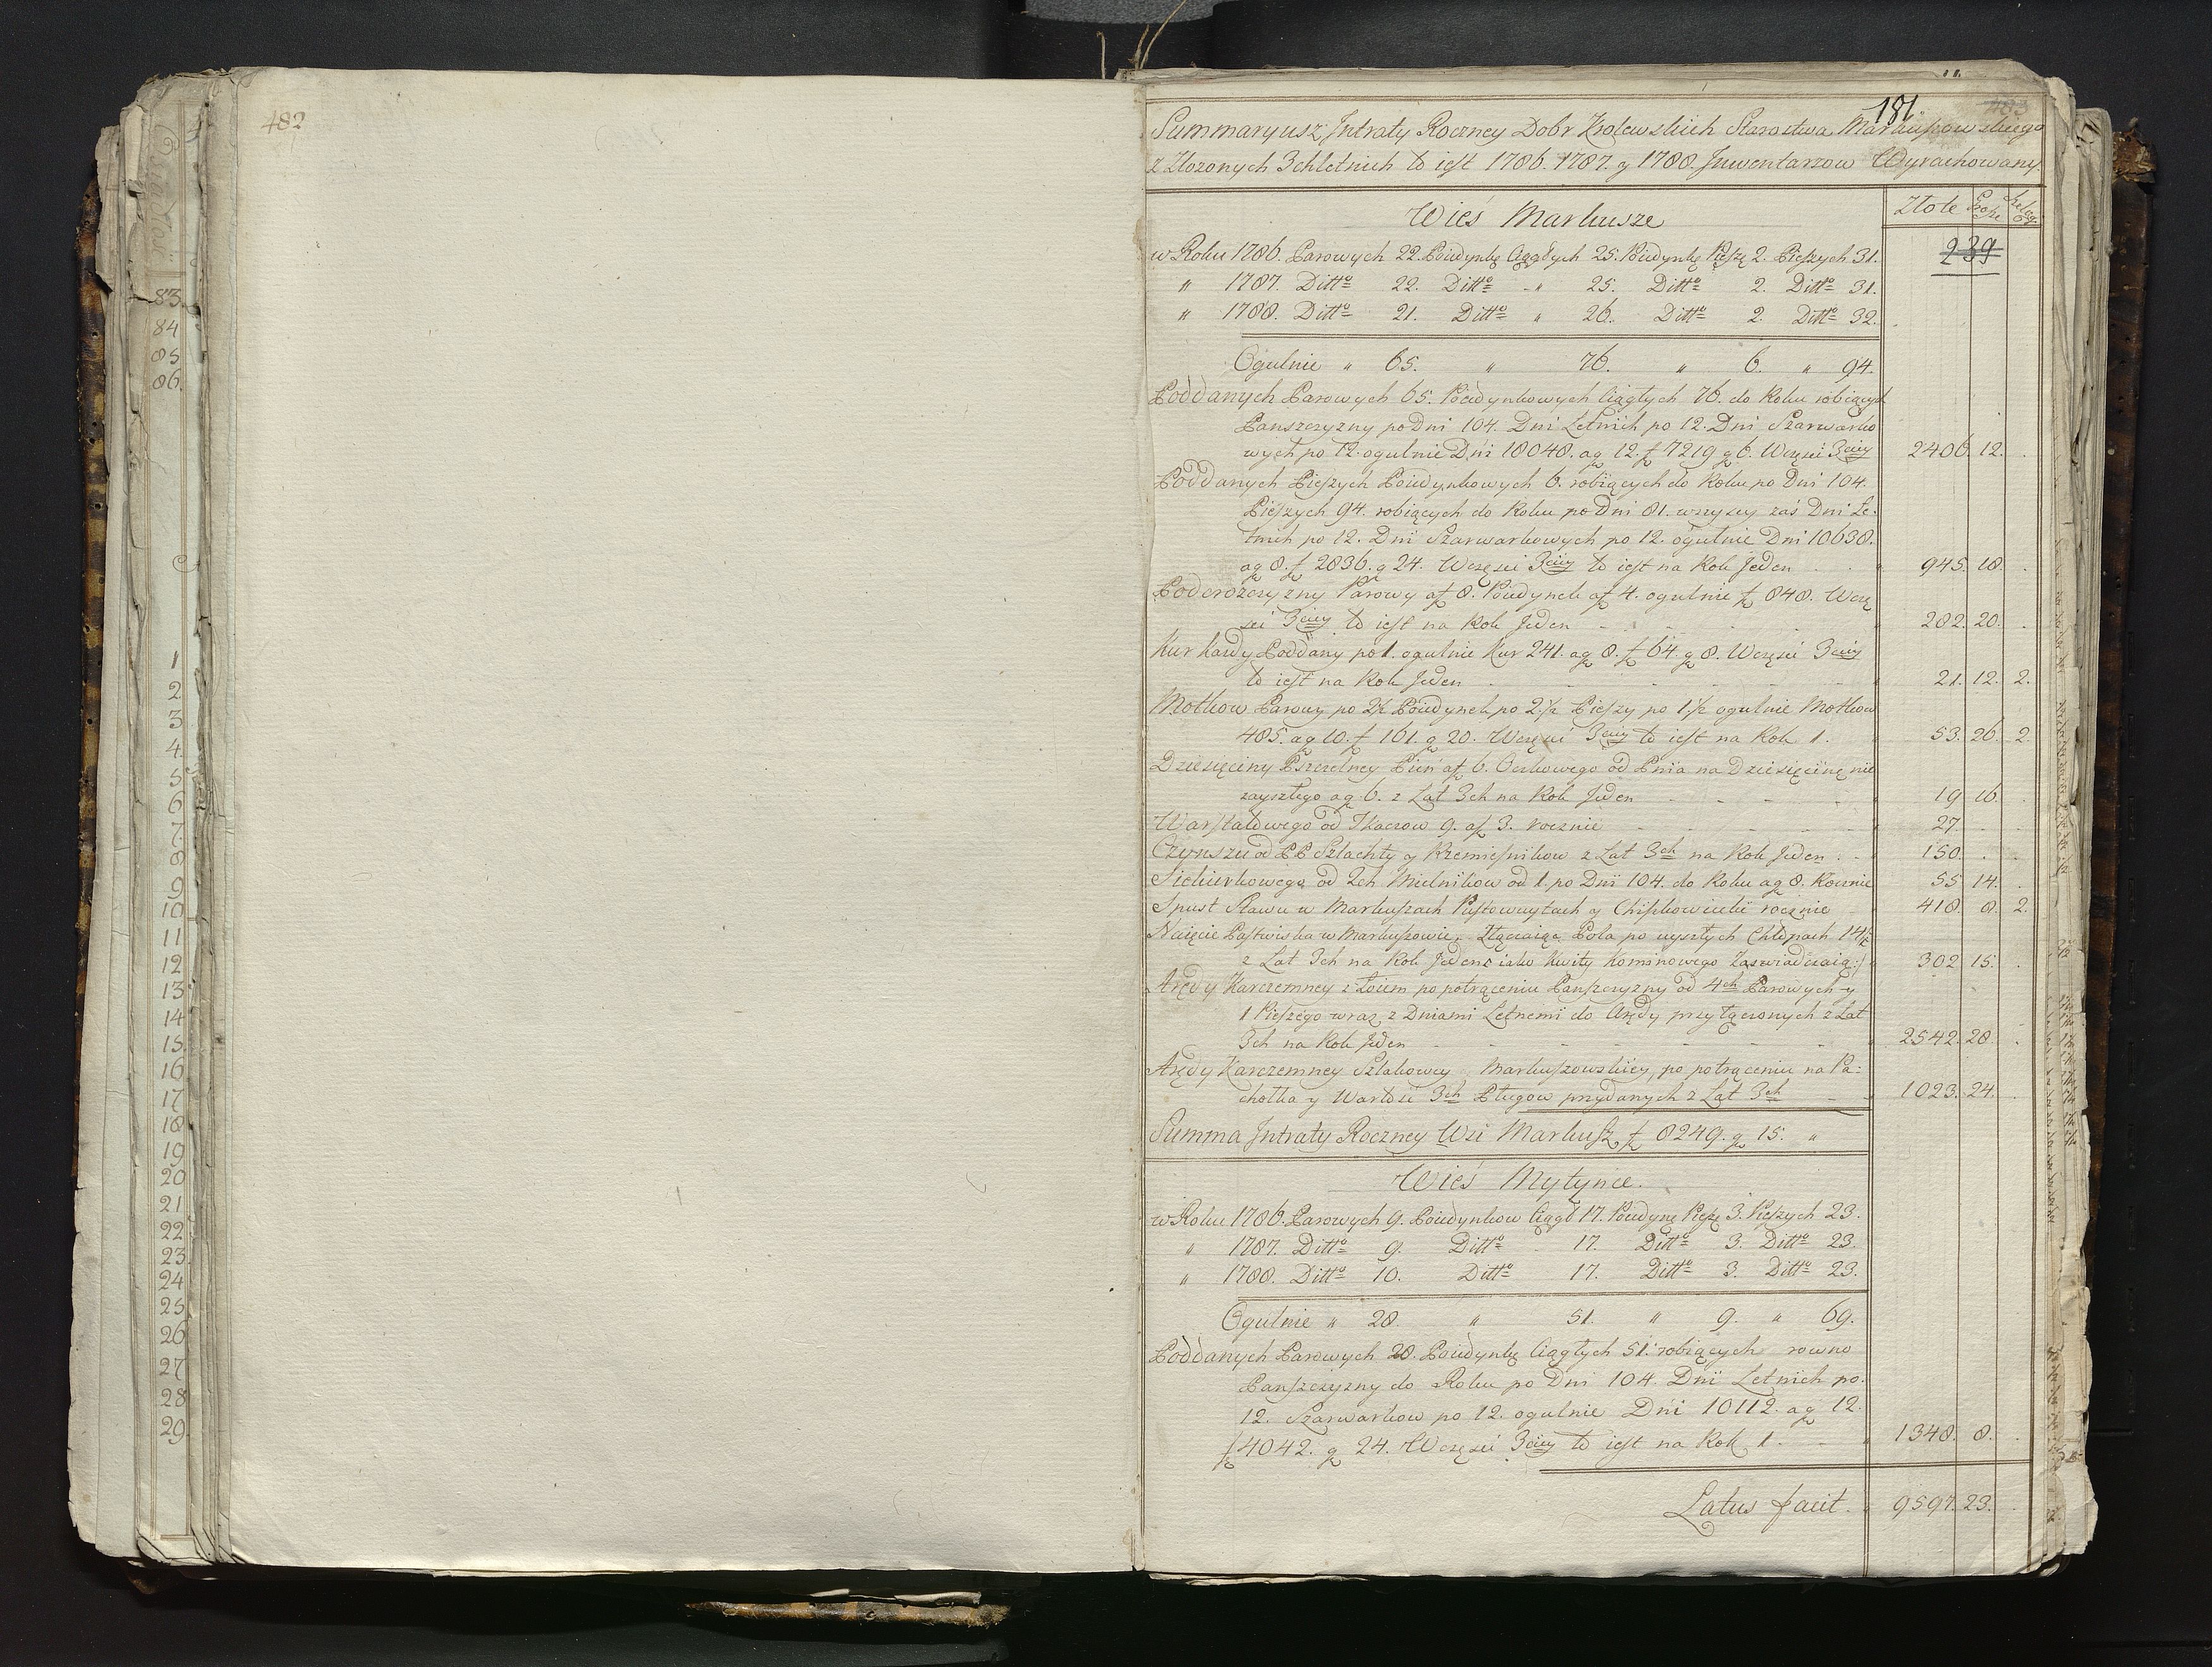 482
83.
84
85
86.
1
2
3
4
5
6
7
8
9
10
11
12
13
14
15
16
17
18
19
20
21
22
23
24
25
26
27
28
29
181.
Summaryusz Jntraty Roczney Dobr Krolewskich Starostwa Markuszowskiego
z Złozonych 3chletnich to iest 1786. 1787. y 1788. Jnwentarzow Wyrachowany.
Złote Grosze Szelągi
Wieś Markusze
239
w Roku 1786. Parowych 22. Poiedynkę Ciągłych 25. Poiedynkę Pieszę 2. Pieszych 31.
" 1787. Ditto 22. Ditto " 25. Ditto 2. Ditto 31.
" 1788. Ditto 21. Ditto " 26. Ditto 2. Ditto 32.
Ogulnie " 65. " 76. " 6. " 94.
Poddanych Parowych 65. Poiedynkowych Ciągłych 76. do Roku robiących
Panszczyzny po Dni 104. Dni Letnich po 12. Dni Szarwarko
wych po 12. ogulnie Dni 18048. a g 12. f 7219 g 6. Wczęsci 3ciey 2406. 12.
Poddanych Pieszych Poiedynkowych 6. robiących do Roku po Dni 104.
Pieszych 94. robiących do Roku po Dni 81. wszyscy zaś Dni Le-
tnich po 12. Dni Szarwarkowych po 12. ogulnie Dni 10638.
a g 8. f 2836. g 24. Wczęsci 3ciey to iest na Rok Jeden 945. 18.
Podorozczyzny Parowy a f 8. Poiedynek a f 4. ogulnie f 848. Wczę
sci 3ciey to iest na Rok Jeden 282. 20.
Kur Kazdy Poddany po 1. ogulnie Kur 241. a g 8. f 64. g 8. Wczęsci 3ciey
to iest na Rok Jeden 21. 12. 2.
Motkow Parowy po 2½ Poiedynek po 2½ Pieszy po 1½ ogulnie Motkow
485. a g 10. f 161. g 20. Wczęsci 3ciey to iest na Rok 1. 53. 26. 2.
Dziesięciny Pszczelney Pień a f 6. Oczkowego od Pnia na Dziesięcinę nie
zayszłego a g 6. z Lat 3ch na Rok Jeden 19 16.
Warsztatowego od Tkaczow 9. a f 3. rocznie 27.
Czynszu od PP Szlachty y Rzemieśnikow z Lat 3ch na Rok Jeden 150.
Siekierkowego od 2ch Mielnikow od 1. po Dni 104. do Roku a g 8. Rocznie 55 14.
Spust Stawu w Markuszach Pustowuytach y Chispkowiecki rocznie 418. 8. 2.
Naięcie Pastwiska w Markuszowie Pola po uyszłych Chłopach 14½
z Lat 3ch na Rok Jeden iako Kwity Kominowego Zaswiadczaią 302. 15.
Arędy Karczemney z Łoiem po potrąceniu Panszczyzny od 4ch Parowych y
1 Pieszego wraz z Dniami Letnemi do Arędy przyłączonych z Lat
3ch na Rok Jeden 2542. 28.
Arędy Karczemney Szlakowey Markuszowskiey, po potrąceniu na Pa-
chołka y Wartosc 3ch Pługow przydanych z Lat 3ch 1023. 24.
Summa Jntraty Roczney Wsi Markusz f 8249. g 15. "
Wieś Mytynce.
w Roku 1786. Parowych 9. Poiedynkow Ciągł 17. Poiedynę Pieszę 3. Pieszych 23.
" 1787. Ditto 9. Ditto 17. Ditto 3. Ditto 23.
" 1788. Ditto 10. Ditto 17. Ditto 3. Ditto 23.
Ogulnie " 28. " 51. " 9. " 69.
Poddanych Parowych 28. Poiedynkę Ciągłych 51. robiących rowno
Panszczyzny do Roku po Dni 104. Dni Letnich po
12. Szarwarkow po 12. ogulnie Dni 10112. a g 12.
f 4042. g 24. Wczęsci 3ciey to iest na Rok 1. 1348. 8.
Latus facit 9597. 23.